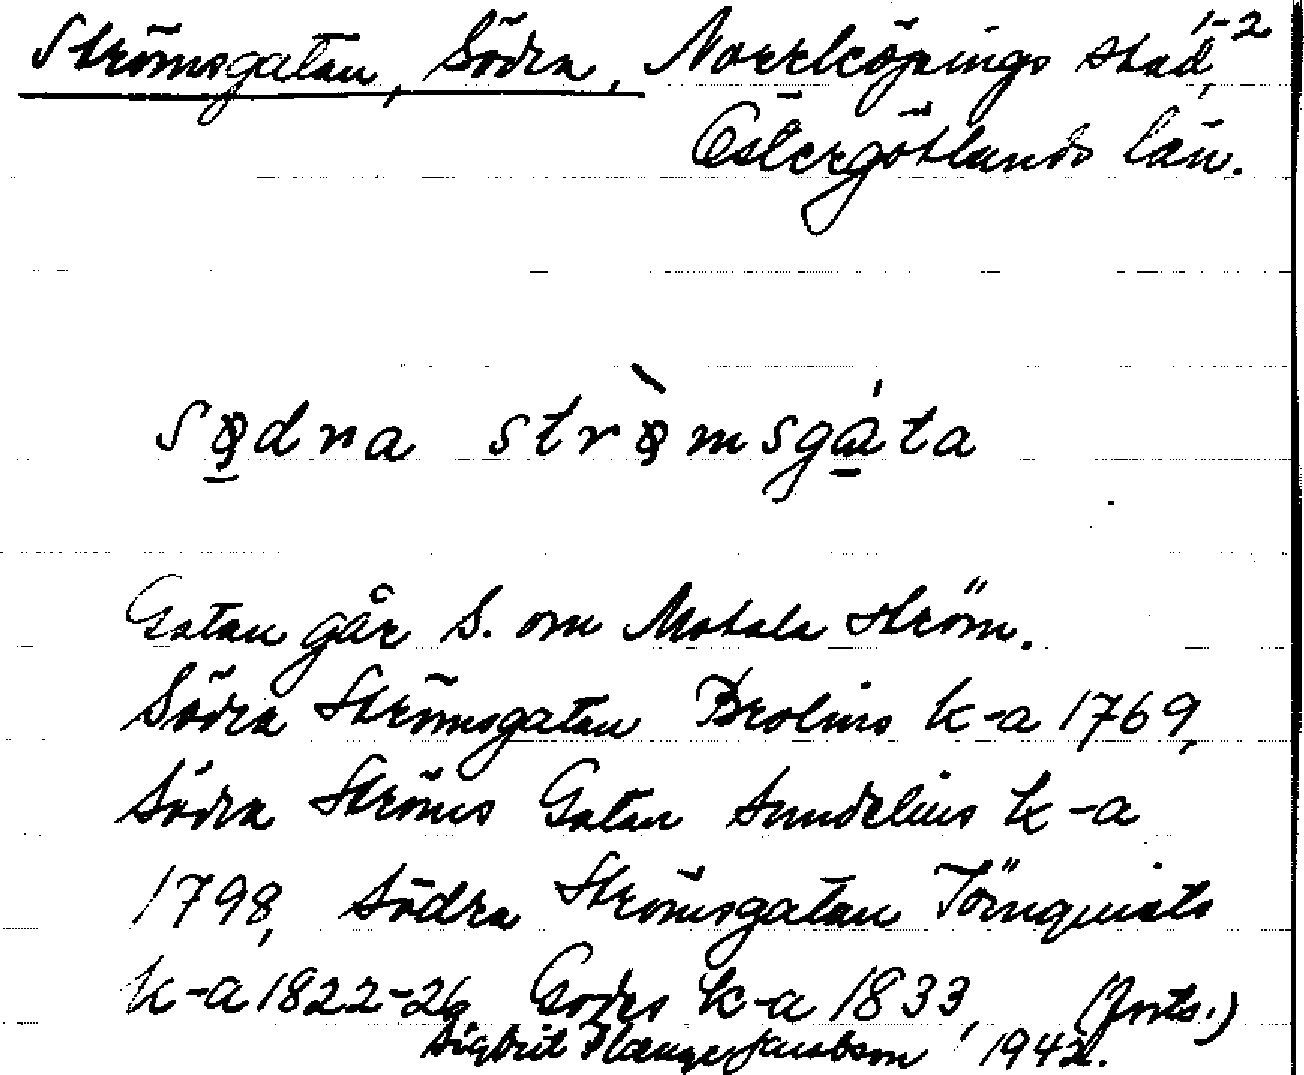 Strömsgatan, Södra, Norrköpings stad, 1-2
Östergötlands län.
södra strömsgata
Gatan går S. om Motala ström.
Södra Strömsgatan Brolins k-a 1769,
Södra Ströms Gatan Sundelius k-a
1798, Södra Strömsgatan Törnquists
k-a 1822-26 k-a 1833, (forts.)
Sigbrit 1942.